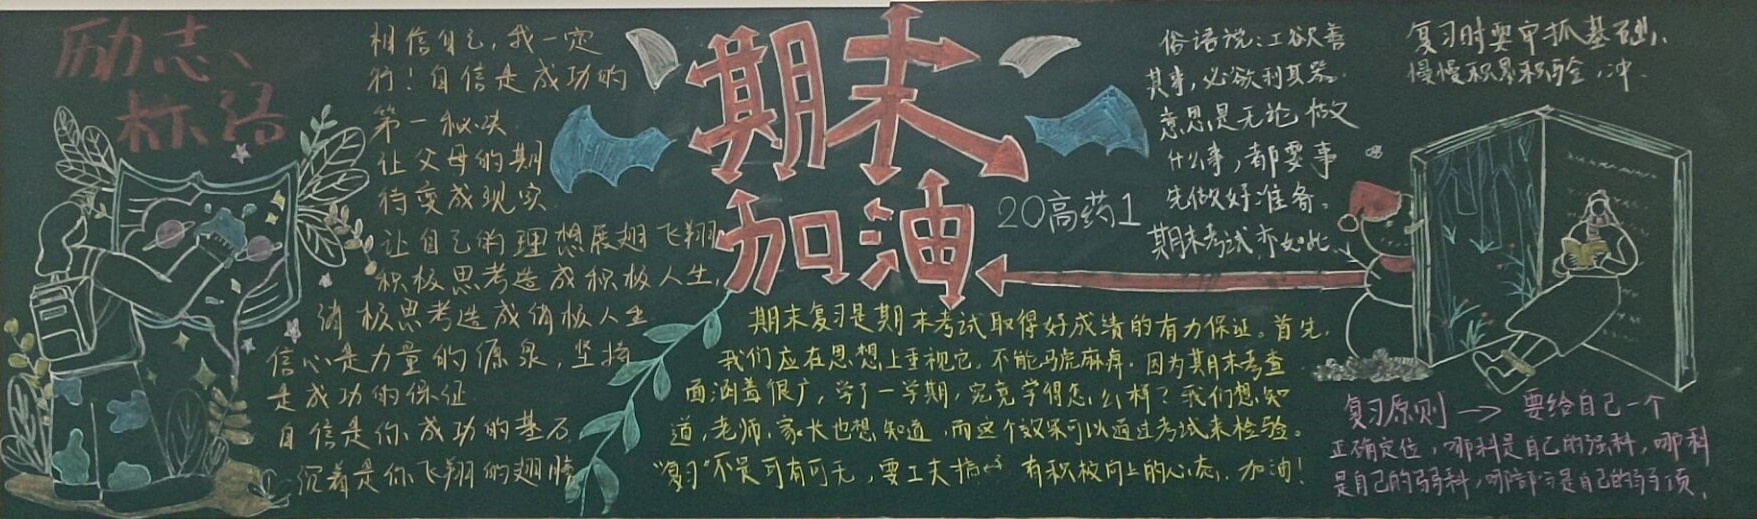 励志、
标语
相信自己,我一定
行!自信是成功的
第一秘决
让父母的期
待变成现实
让自己的理想展翅飞翔
积极思考造成积极人生,
消极思考造成消极人生
信心是力量的源泉,坚持
是成功的保证
自信是你成功的基石
沉着是你飞翔的翅膀
期末
加油
20高药1
俗语说:工欲善
其事,必欲利其器。
意思是无论做
什么事,都要事
先做好准备。
期末考试亦如此、
复习时要牢抓基础,
慢慢积累 冲.
期末复习是期末考试取得好成绩的有力保证。首先,
我们应在思想上重视它。不能马虎麻痹。因为其期末考查
面涵盖很广,学了一学期,究竟学得怎么样?我们想知
道,老师,家长也想知道,而这个效果可以通过考试来检验。
“复习”不是可有可无,要工夫 有积极向上的心态.加油!
复习原则→要给自己一个
正确定位,哪科是自己的强科,哪科
是自己的弱科,哪部分是自己的弱项,